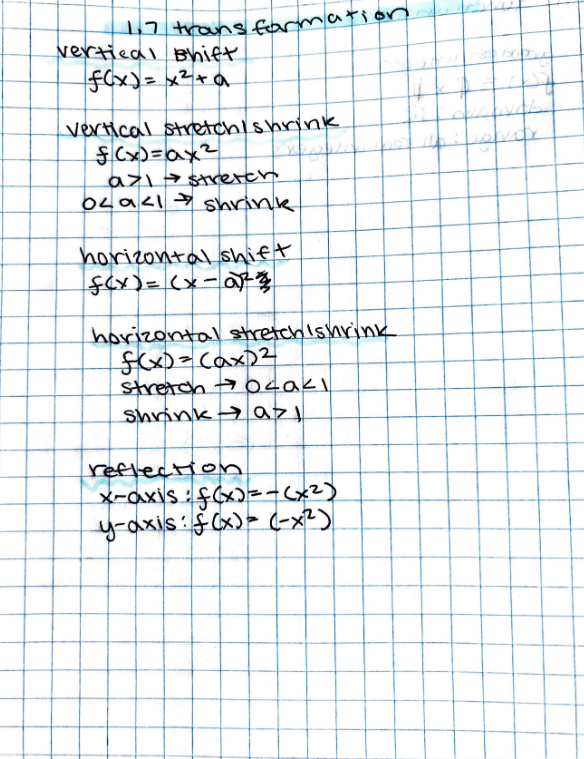 1.7 transformation
vertical shift
f(x) = x² + a
vertical stretch/shrink
f(x) = ax²
a>1 → stretch
0<a<1 → shrink
horizontal shift
f(x) = (x - a)²
horizontal stretch/shrink
f(x) = (ax)²
stretch → 0<a<1
shrink → a>1
reflection
x-axis : f(x) = -(x²)
y-axis : f(x) = (-x²)